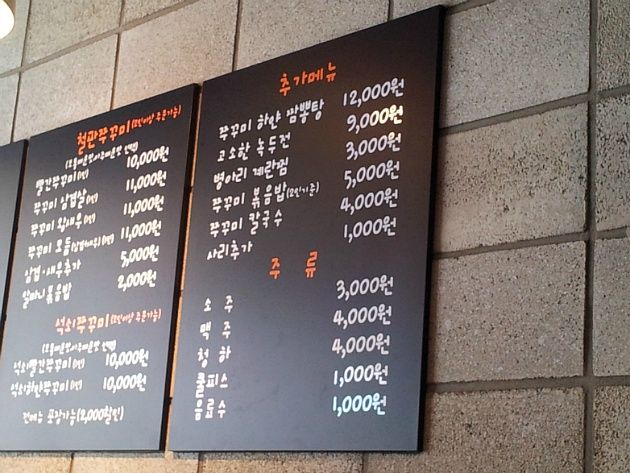 철판쭈꾸미(2인이상 주문가능)
(보통매운맛/매운맛 선택)
빨간쭈꾸미(1인) 10,000원
쭈꾸미 삼겹살(1인) 11,000원
쭈꾸미 왕새우(1인) 11,000원
쭈꾸미 모듬(삼겹/새우)(1인) 11,000원
삼겹·새우추가 5,000원
알마니볶음밥 2,000원
석쇠쭈꾸미(2인이상 주문가능)
(보통매운맛/매운맛 선택)
석쇠빨간쭈꾸미(1인) 10,000원
석쇠하얀쭈꾸미(1인) 10,000원
전메뉴 포장가능(2,000할인)
추가메뉴
쭈꾸미 하얀 짬뽕탕 12,000원
고소한 녹두전 9,000원
병아리 계란찜 3,000원
쭈꾸미 볶음밥(2인기준) 5,000원
쭈꾸미 칼국수 4,000원
사리추가 1,000원
주 류
소 주 3,000원
맥 주 4,000원
청 하 4,000원
쿨피스 1,000원
음료수 1,000원